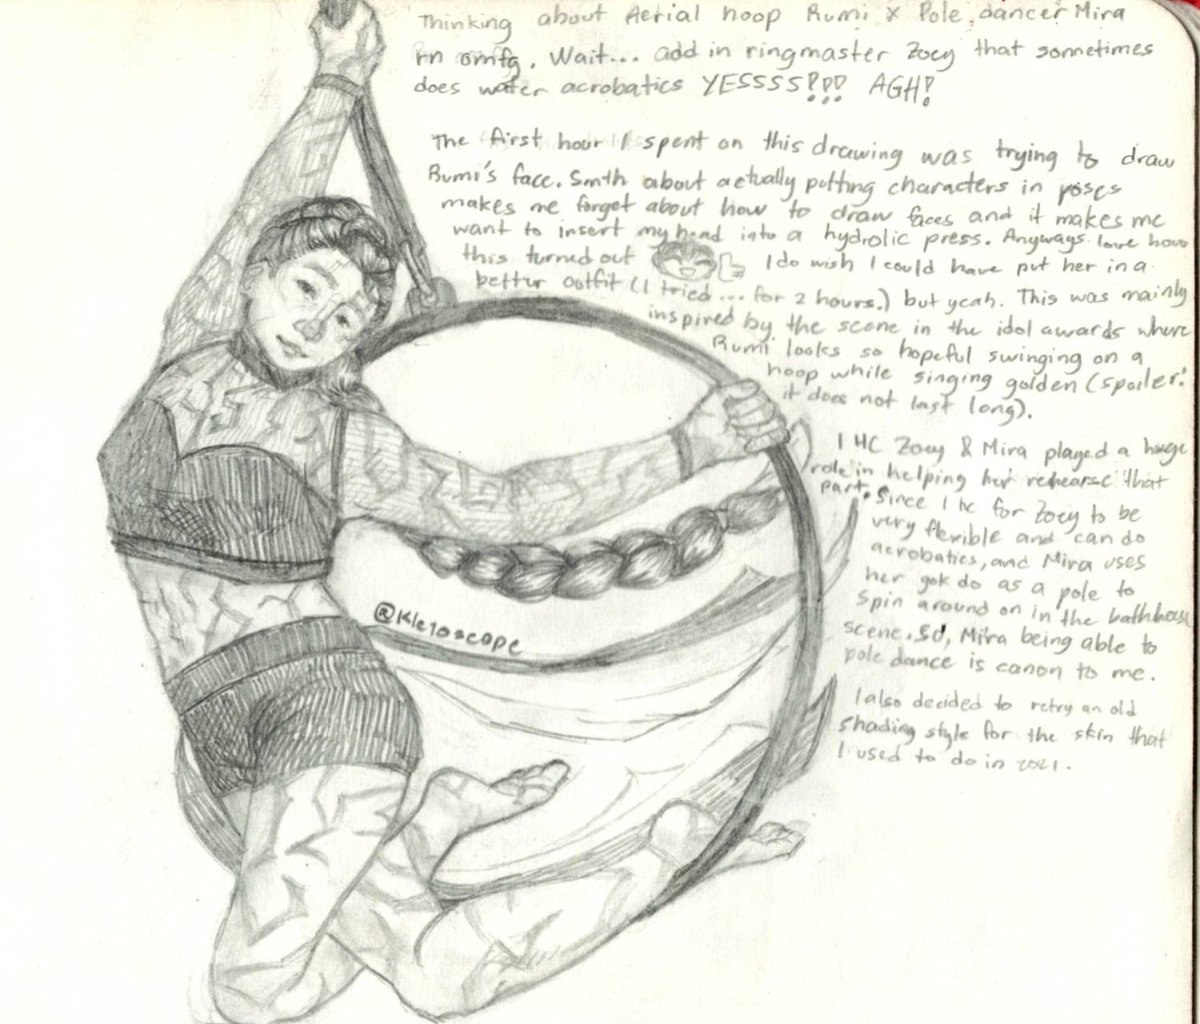 Thinking about Aerial hoop Rumi x Pole dancer Mira
rn omfg. Wait... add in ringmaster Zoey that sometimes
does water acrobatics YESSSS?!?! AGH!
The first hour I spent on this drawing was trying to draw
Rumi's face. Smth about actually putting characters in poses
makes me forget about how to draw faces and it makes me
want to insert my head into a hydrolic press. Anyways love how
this turned out I do wish I could have put her in a
better outfit (I tried... for 2 hours.) but yeah. This was mainly
inspired by the scene in the idol awards where
Rumi looks so hopeful swinging on a
hoop while singing golden (spoiler:
it does not last long).
I HC Zoey & Mira played a huge
role in helping her rehearse that
part. Since I hc for Zoey to be
very flexible and can do
acrobatics, and Mira uses
her gok do as a pole to
spin around on in the bathhouse
scene. So, Mira being able to
pole dance is canon to me.
I also decided to retry an old
shading style for the skin that
I used to do in 2021.
@Kleroscope